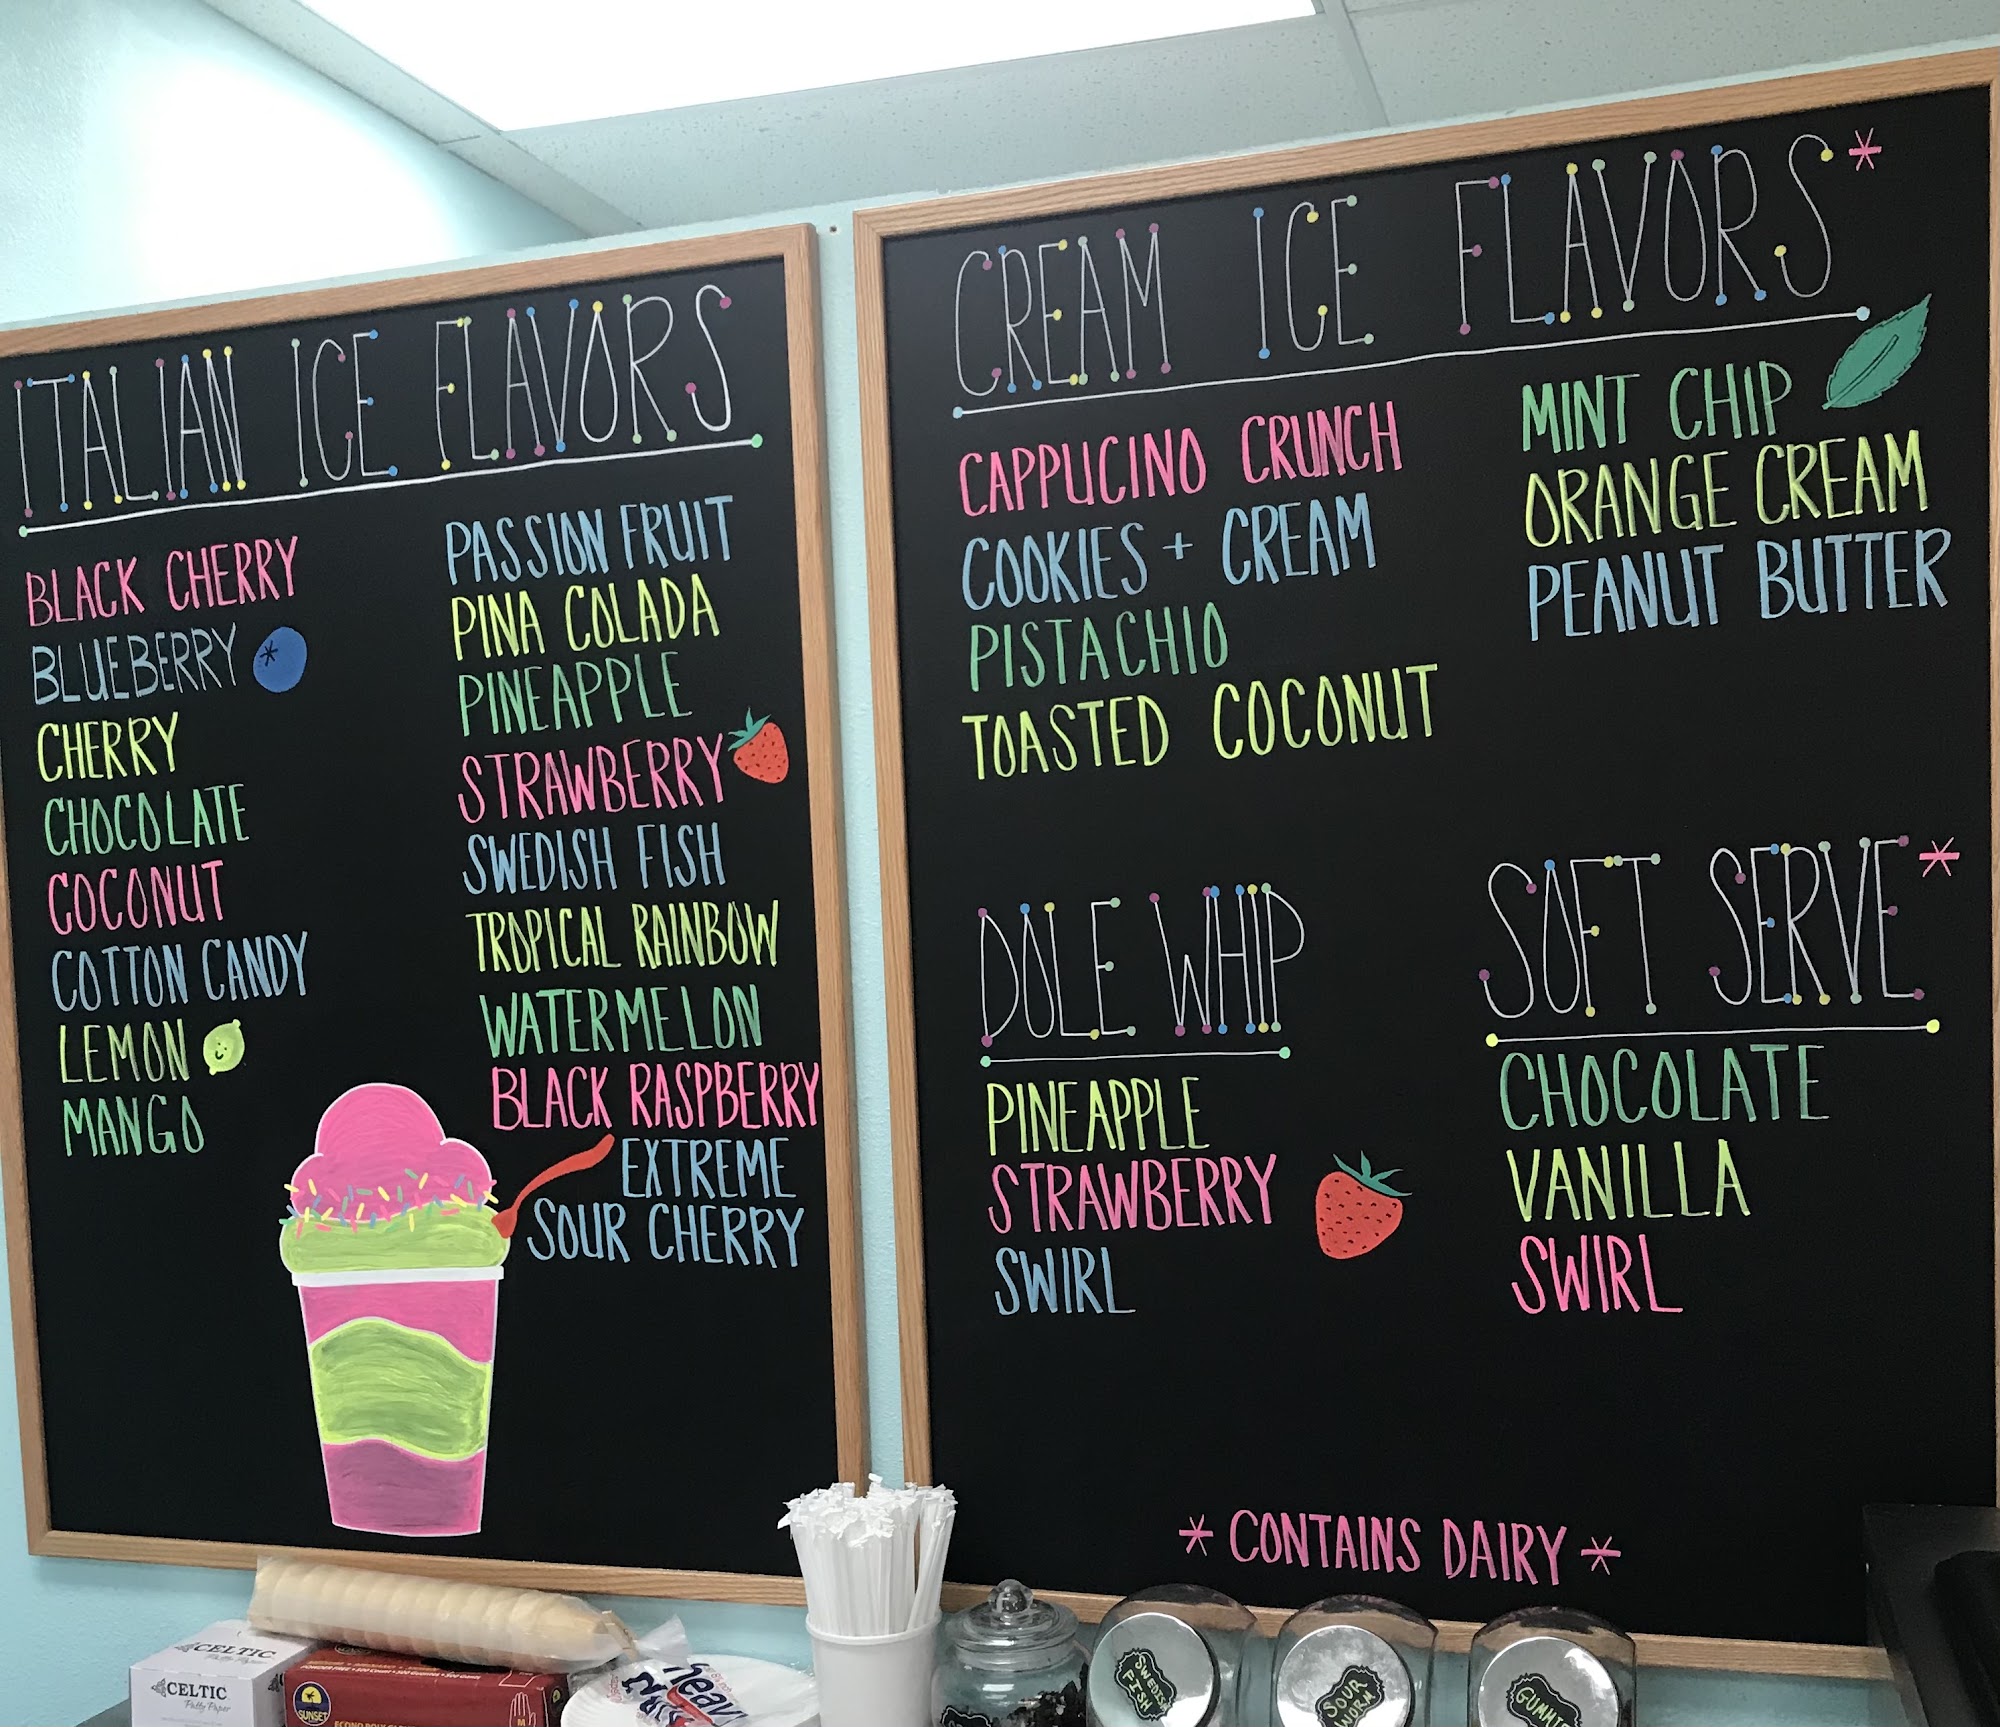 ITALIAN ICE FLAVORS
BLACK CHERRY
BLUEBERRY
CHERRY
CHOCOLATE
COCONUT
COTTON CANDY
LEMON
MANGO
PASSION FRUIT
PINA COLADA
PINEAPPLE
STRAWBERRY
SWEDISH FISH
TROPICAL RAINBOW
WATERMELON
BLACK RASPBERRY
EXTREME
SOUR CHERRY
CREAM ICE FLAVORS*
CAPPUCINO CRUNCH
COOKIES + CREAM
PISTACHIO
TOASTED COCONUT
MINT CHIP
ORANGE CREAM
PEANUT BUTTER
DOLE WHIP
PINEAPPLE
STRAWBERRY
SWIRL
SOFT SERVE*
CHOCOLATE
VANILLA
SWIRL
* CONTAINS DAIRY *
CELTIC
CELTIC
Patty Paper
SUNSET
M
SWEDISH
FISH
SOUR
WORM